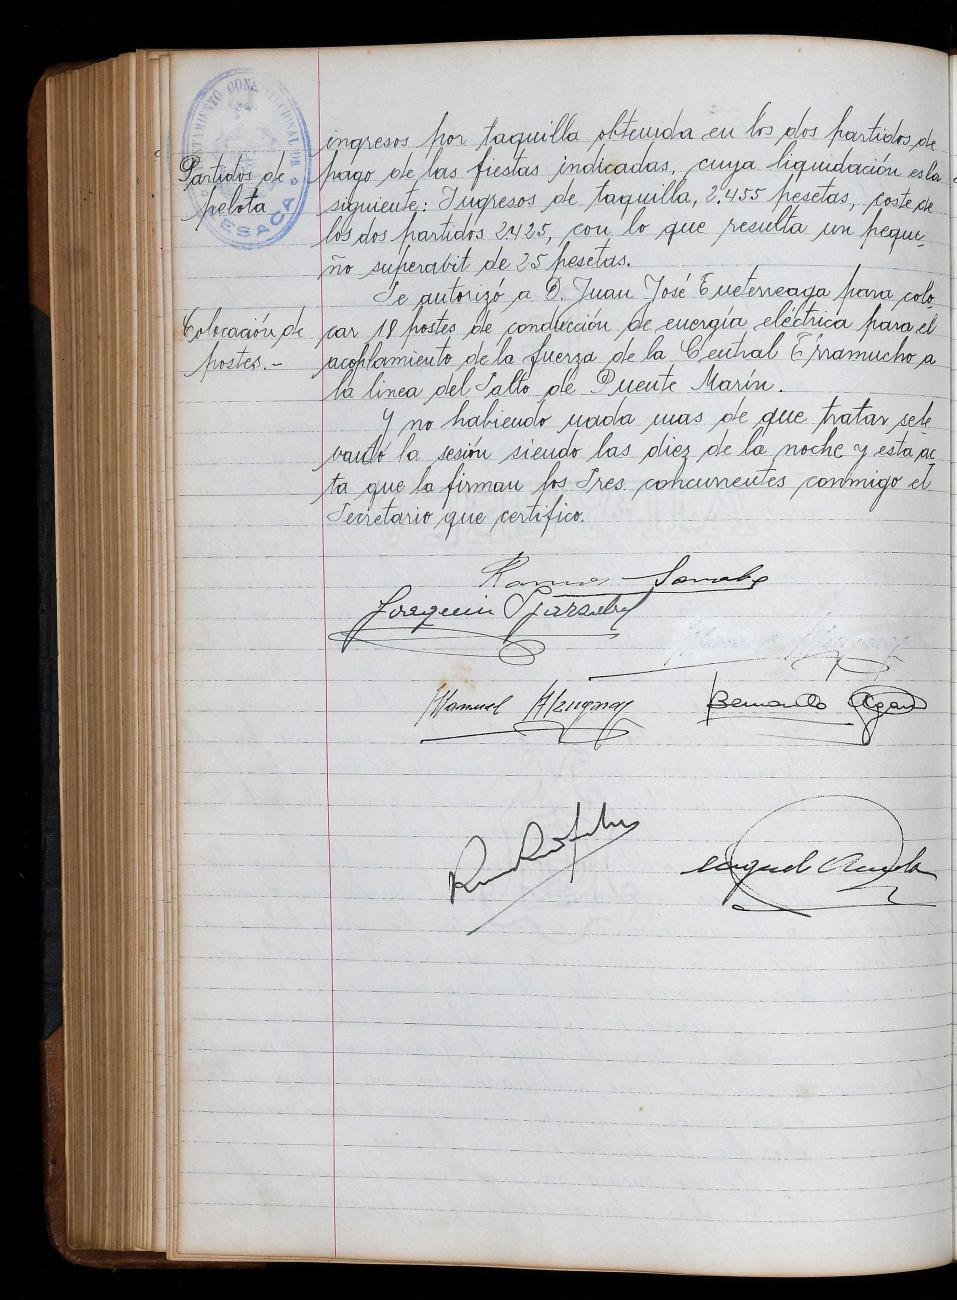 AYUNTAMIENTO CONSTITUCIONAL DE
LESACA
Partidos de
pelota
ingresos por taquilla obtenida en los dos partidos de
pago de las fiestas indicadas, cuya liquidación es la
siguiente: Ingresos de taquilla, 2.455 pesetas, coste de
los dos partidos 2425, con lo que resulta un peque-
ño superabit de 25 pesetas.
Colocación de
postes.-
Se autorizó a D. Juan José Eneterreaga para colo
car 18 postes de conducción de energía eléctrica para el
acoplamiento de la fuerza de la Central Erramucho a
la linea del Salto de Puente Marín.
Y no habiendo nada mas de que tratar se le
vantó la sesión siendo las diez de la noche y esta ac
ta que la firman los Sres. concurrentes conmigo el
Secretario que certifico.
Joaquin
Manuel
Bernardo
Miguel